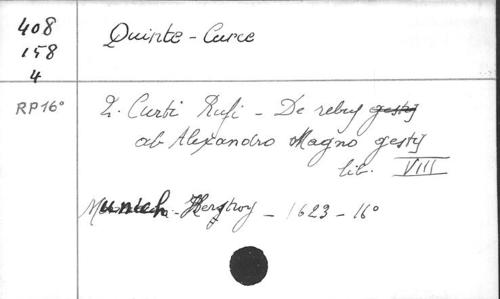 408
158
4
Quinte-Curce
RP 16°
Q. Curti Rufi - De rebus gestis
ab Alexandro Magno gestis
lib. VIII
Munich - Hertsroy - 1623 - 16°